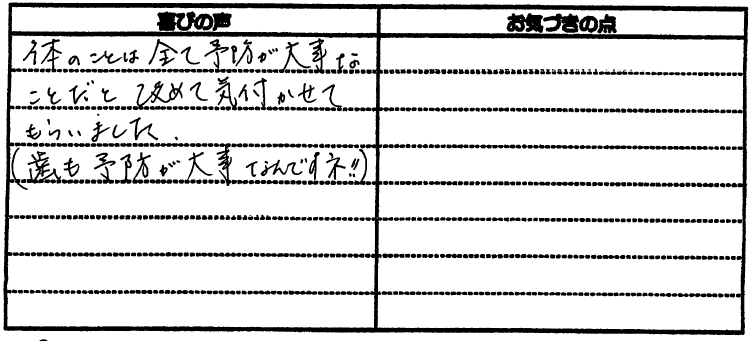 喜びの声
お気づきの点
体のことは全て予防が大事な
ことだと改めて気付かせて
もらいました。
(歯も予防が大事なんですネ!!)